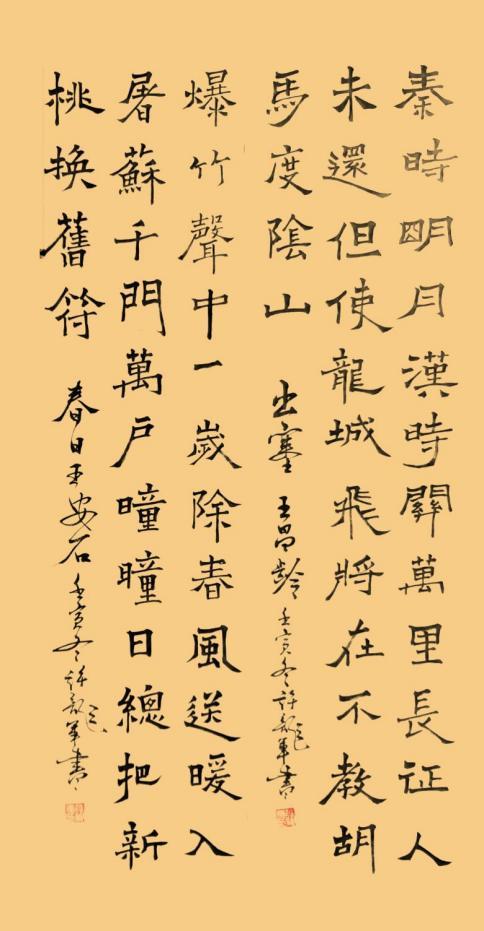 秦時明月漢時關萬里長征人
未還但使龍城飛將在不教胡
馬度陰山
出塞 王昌龄 壬寅冬許龍軍書
爆竹聲中一歲除春風送暖入
屠蘇千門萬戶瞳瞳日總把新
桃換舊符
春日王安石 壬寅冬許龍軍書